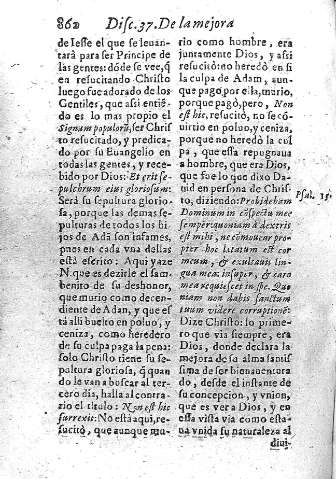 862 Disc. 37. De la mejora
de Iesse el que se leuan-
tará para ser Principe de
las gentes: dóde se vee, q̃
en resucitando Christo
luego fue adorado de los
Gentiles, que assi entié-
do es lo mas propio el
Signum populorũ, ser Chris
to resucitado, y predica-
do por su Euangelio en
todas las gentes, y rece-
bido por Dios: Et erit se-
pulchrum eius gloriosum:
Será su sepultura glorio-
sa, porque las demas se-
pulturas de todos los hi-
jos de Adã son infames,
pones en cada vna dellas
está escrito: Aqui yaze
N. que es dezirle el sam-
benito de su deshonor,
que murio como decen-
diente de Adan, y que es
tá alli buelto en poluo, y
ceniza, como heredero
de su culpa paga la pena:
solo Christo tiene su se-
pultura gloriosa, q̃ quan
do le van a buscar al ter-
cero dia, halla al contra-
rio el titulo: Non est hic
surrexit: No está aqui, re-
sucitó, que aunque mu-
rio como hombre, era
juntamente Dios, y assi
resucitó: no heredó en si
la culpa de Adam, aun-
que pagó por ella, murio,
porque pagó, pero, Non
est hic, resucitó, no se có-
uirtio en poluo, y ceniza,
porque no heredó la cul
pa, que essa repugnaua
a hombre, que era Dios,
que fue lo que dixo Da-
uid en persona de Chris-
to, diziendo: Prouidebam
Dominum in cõspectu meo
semper: quoniam à dextris
est mihi, ne cõmouear prop
ter hoc lætatum est cor
meum, & exultauit lin-
gua mea: insuper, & caro
mea requiescet in spe. Quo
niam non dabis sanctum
tuum videre corruptionẽ:
Dize Christo: lo prime-
ro que via siempre, era
Dios, donde declara la
mejora de su alma santis
sima de ser bienauentora
da, desde el instante de
su concepcion, y vnion,
que es ver a Dios, y en
essa vista via como esta-
ua vnida su naturaleza al
diui-
Psal. 15.